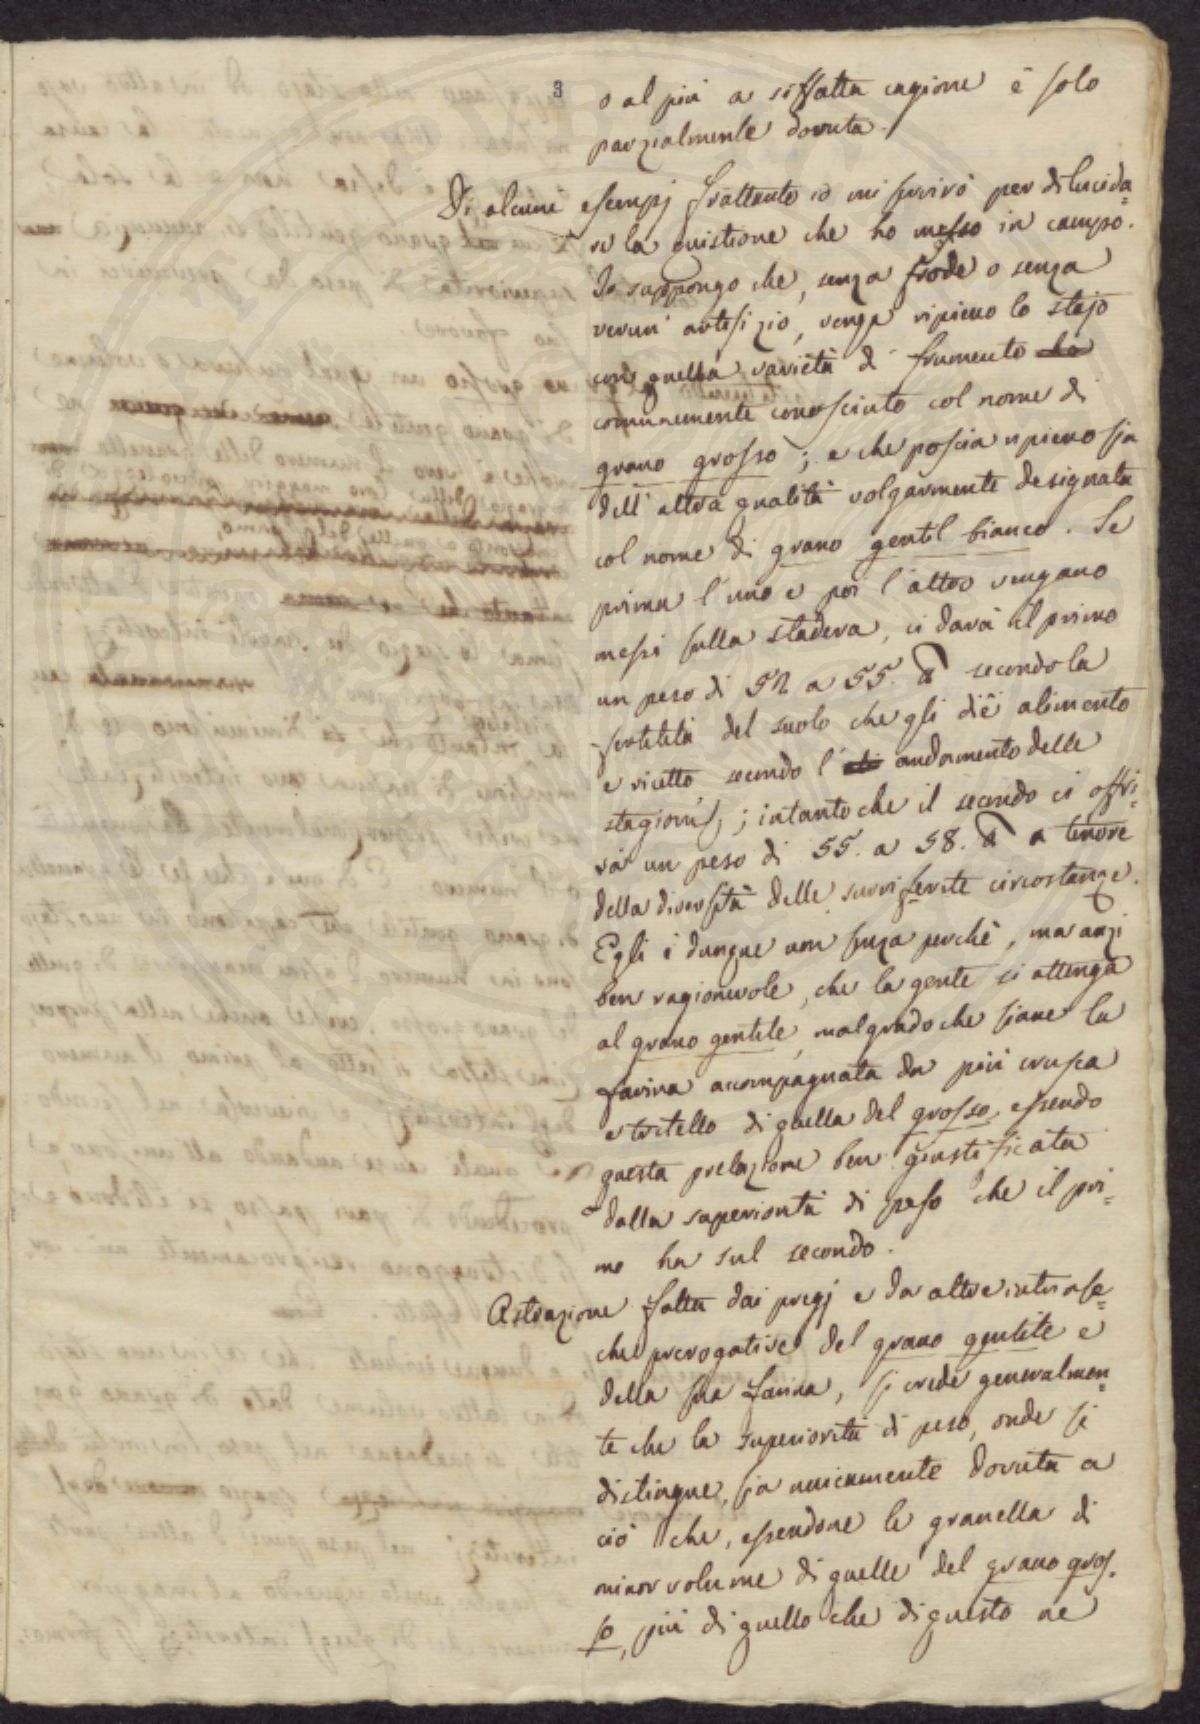 3
o al più a siffatta cagione è solo
parzialmente dovuta.
Di alcuni esempj frattanto io mi servirò per dilucida=
re la quistione che ho messo in campo.
Io suppongo che, senza frode o senza
verun' artifizio, venga ripieno lo stajo
con quella varietà di frumento
comunemente conosciuto col nome di
grano grosso; e che poscia ripieno sia
dell' altra qualità volgarmente designata
col nome di grano gentil bianco. Se
prima l' uno e poi l' altro vengano
messi sulla stadera, ci darà il primo
un peso di 52 a 55. secondo la
fertilità del suolo che gli diè alimento
e ricetto, secondo l' andamento delle
stagioni; intanto che il secondo ci offri=
rà un peso di 55. a 58. a tenore
della diversità delle surriferite circostanze.
Egli è dunque non senza perchè, ma anzi
ben ragionevole, che la gente si attenga
al grano gentile, malgrado che siane la
farina accompagnata da più crusca
e tritello di quella del grosso, essendo
questa prelazione ben giustificata
dalla superiorità di peso che il pri=
mo ha sul secondo.
Astrazione fatta dai pregj e da altre intrinse=
che prerogative del grano gentile e
della sua farina, si crede generalmen=
te che la superiorità di peso, onde si
distingue, sia unicamente dovuta a
ciò che, essendone le granella di
minor volume di quelle del grano gros=
so, più di quello che di questo ne